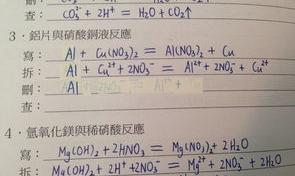 查: CO₃²⁻ + 2H⁺ = H₂O + CO₂↑
3. 鋁片與硝酸銅液反應
寫: Al + Cu(NO₃)₂ = Al(NO₃)₂ + Cu
拆: Al + Cu²⁺ + 2NO₃⁻ = Al²⁺ + 2NO₃⁻ + Cu²⁺
刪: Al
查:
4. 氫氧化鎂與稀硝酸反應
寫: Mg(OH)₂ + 2HNO₃ = Mg(NO₃)₂ + 2H₂O
拆: Mg(OH)₂ + 2H⁺ + 2NO₃⁻ = Mg²⁺ + 2NO₃⁻ + 2H₂O